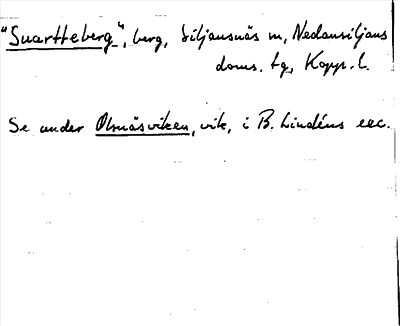 "Suartteberg", berg, Siljansnäs sn, Nedansiljans
doms. tg, Kopp. l.
Se under Olsnäsviken, vik, i B. Lindéns exc.